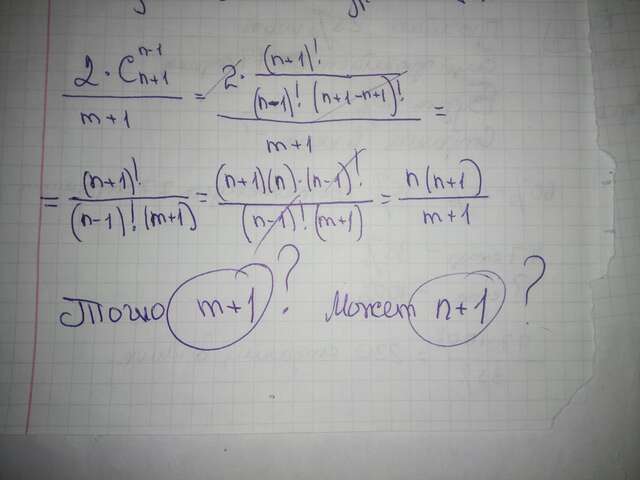 2 · C_{n+1}^{n-1} / (m+1) = 2 · (n+1)! / ((n-1)! (n+1-n+1)!) / (m+1) =
= (n+1)! / ((n-1)! (m+1)) = (n+1)(n)·(n-1)! / ((n-1)! (m+1)) = n(n+1) / (m+1)
Точно m+1 ? Может n+1 ?